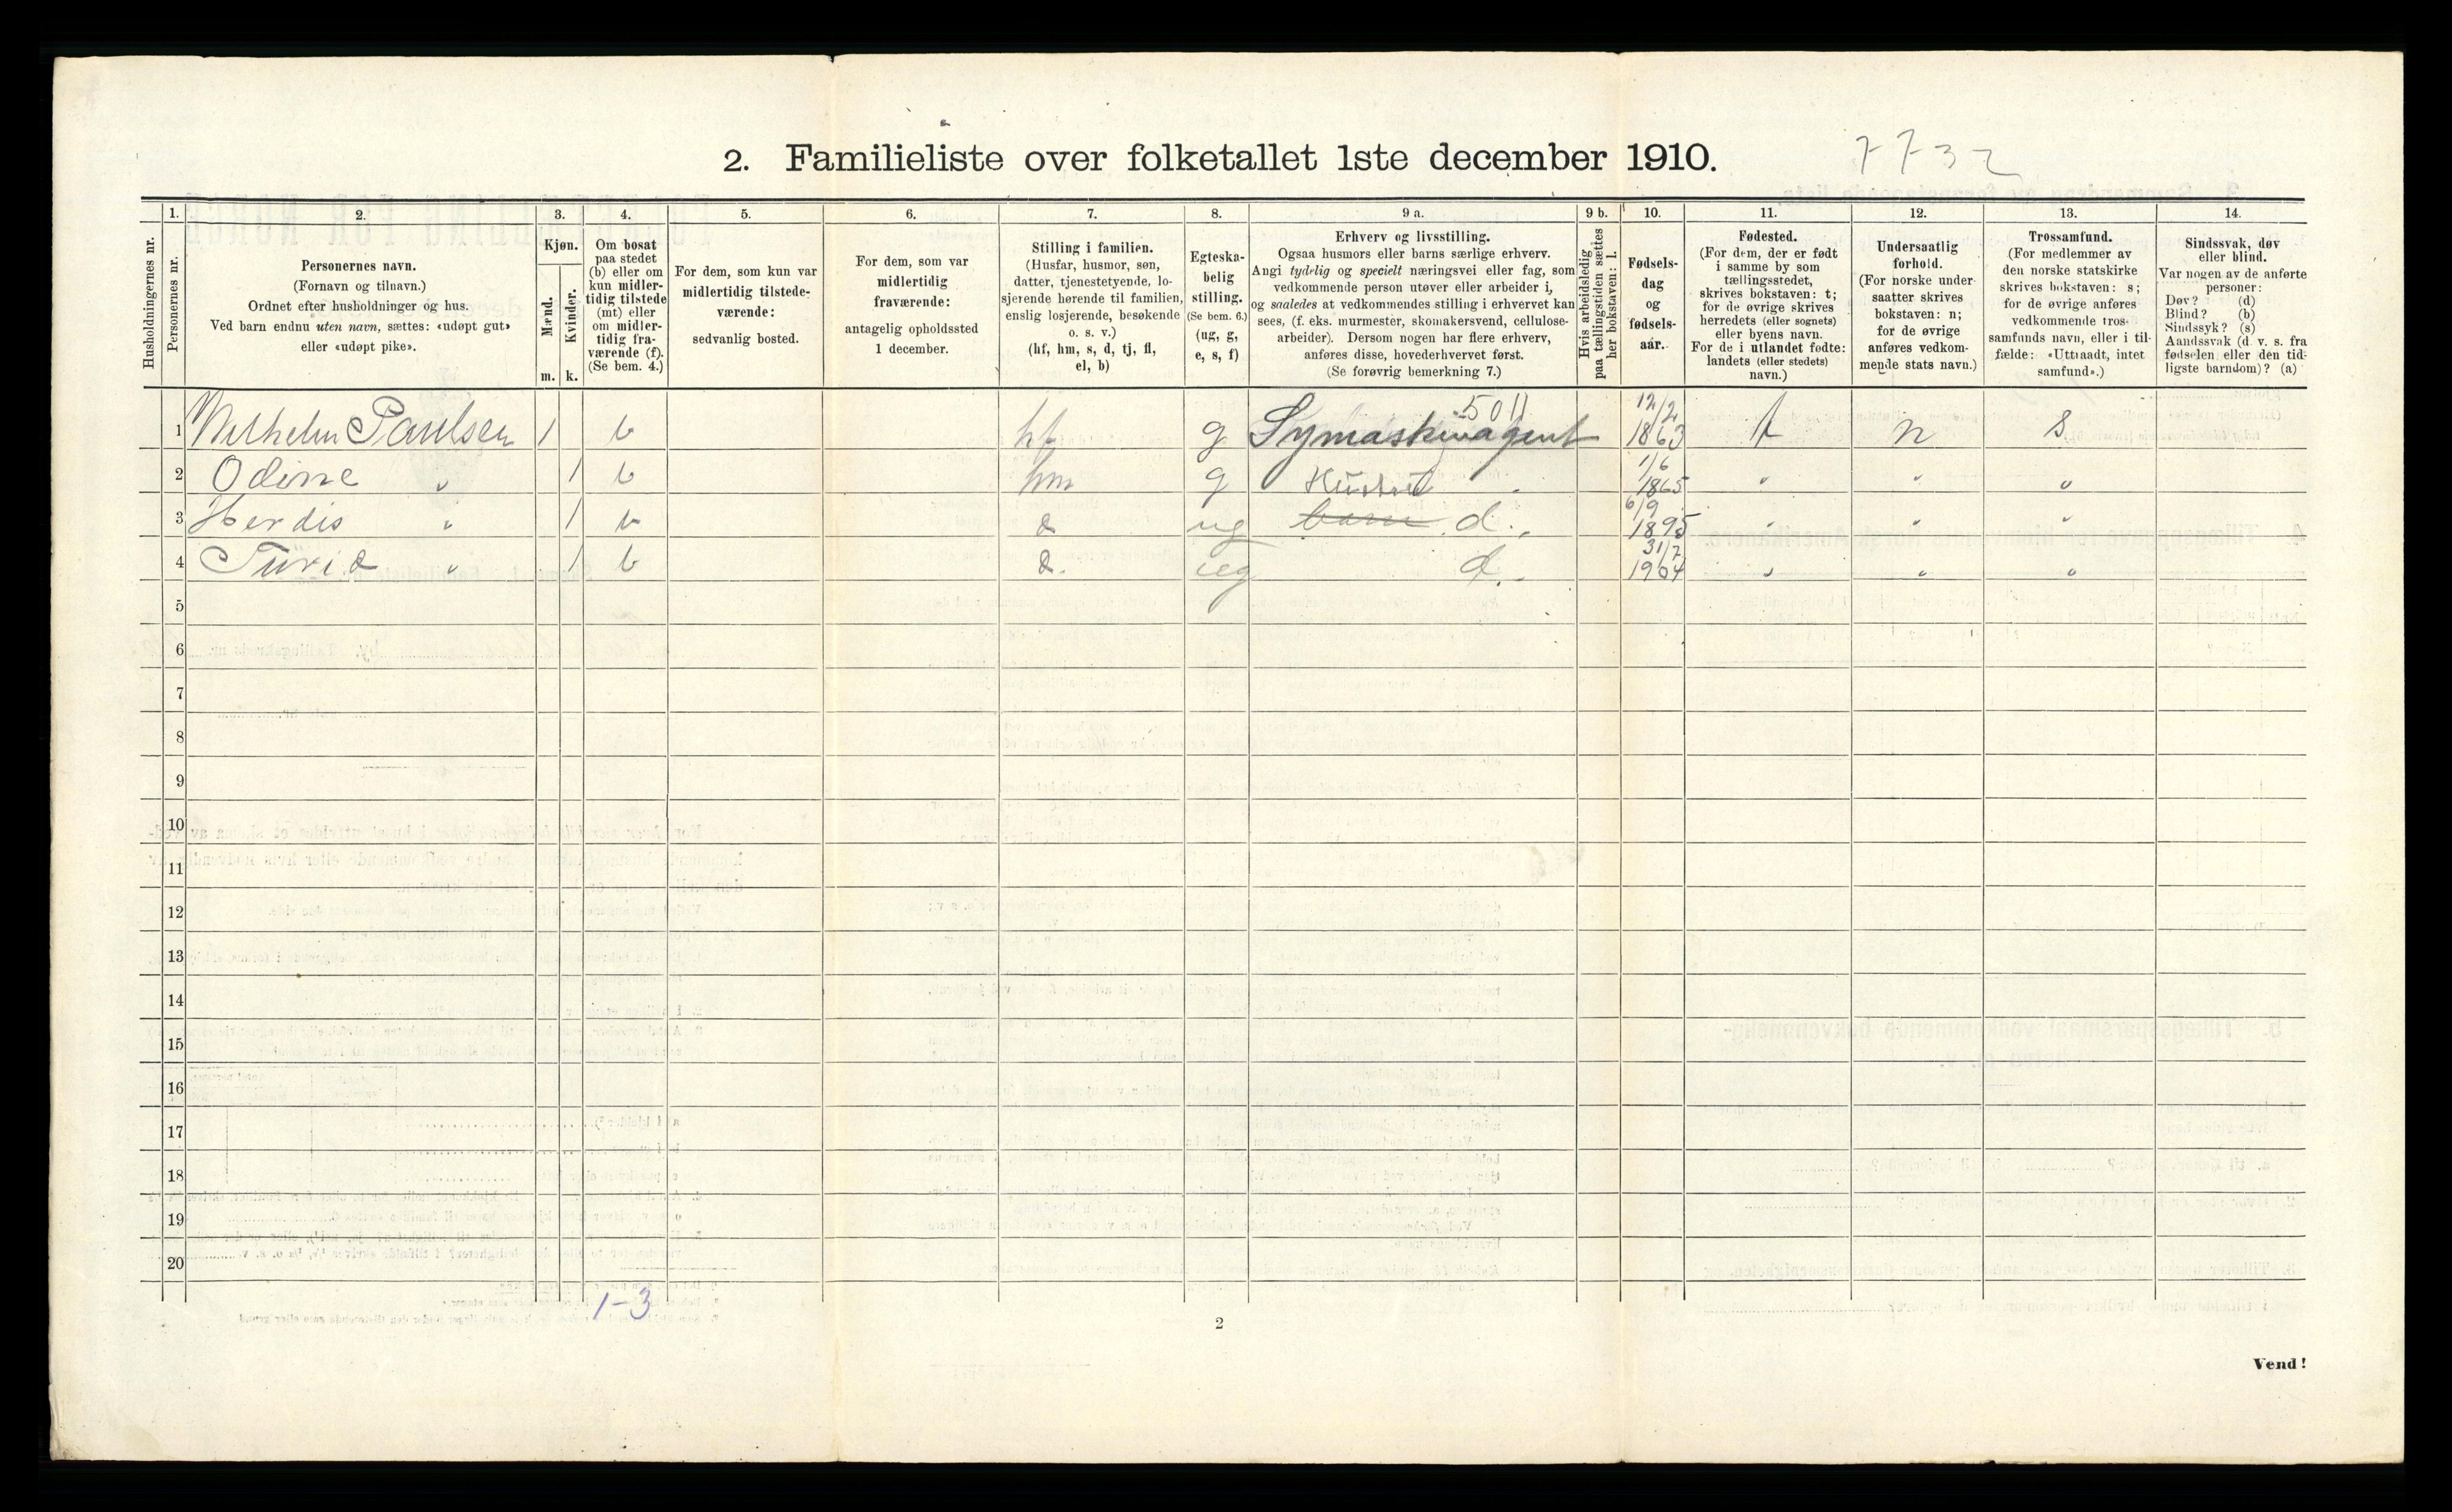 2. Familieliste over folketallet 1ste december 1910.
7732
Husholdningernes nr.
1.
Personernes nr.
2.
Personernes navn.
(Fornavn og tilnavn.)
Ordnet efter husholdninger og hus.
Ved barn endnu uten navn, sættes: «udøpt gut»
eller «udøpt pike».
3.
Kjøn.
Mænd.
Kvinder.
m. k.
4.
Om bosat
paa stedet
(b) eller om
kun midler-
tidig tilstede
(mt) eller
om midler-
tidig fra-
værende (f).
(Se bem. 4.)
5.
For dem, som kun var
midlertidig tilstede-
værende:
sedvanlig bosted.
6.
For dem, som var
midlertidig
fraværende:
antagelig opholdssted
1 december.
7.
Stilling i familien.
(Husfar, husmor, søn,
datter, tjenestetyende, lo-
sjerende hørende til familien,
enslig losjerende, besøkende
o. s. v.)
(hf, hm, s, d, tj, fl,
el, b)
8.
Egteska-
belig
stilling.
(Se bem. 6.)
(ug, g,
e, s, f)
9 a.
Erhverv og livsstilling.
Ogsaa husmors eller barns særlige erhverv.
Angi tydelig og specielt næringsvei eller fag, som
vedkommende person utøver eller arbeider i,
og saaledes at vedkommendes stilling i erhvervet kan
sees, (f. eks. murmester, skomakersvend, cellulose-
arbeider). Dersom nogen har flere erhverv,
anføres disse, hovederhvervet først.
(Se forøvrig bemerkning 7.)
9 b.
Hvis arbeidsledig
paa tællingstiden sættes
her bokstaven: l.
10.
Fødsels-
dag
og
fødsels-
aar.
11.
Fødested.
(For dem, der er født
i samme by som
tællingsstedet,
skrives bokstaven: t;
for de øvrige skrives
herredets (eller sognets)
eller byens navn.
For de i utlandet fødte:
landets (eller stedets)
navn.)
12.
Undersaatlig
forhold.
(For norske under-
saatter skrives
bokstaven: n;
for de øvrige
anføres vedkom-
mende stats navn.)
13.
Trossamfund.
(For medlemmer av
den norske statskirke
skrives bokstaven: s;
for de øvrige anføres
vedkommende tros-
samfunds navn, eller i til-
fælde: «Uttraadt, intet
samfund».)
14.
Sindssvak, døv
eller blind.
Var nogen av de anførte
personer:
Døv? (d)
Blind? (b)
Sindssyk? (s)
Aandssvak (d. v. s. fra
fødselen eller den tid-
ligste barndom)? (a)
501
1 Wilhelm Paulsen 1 b hf g Symaskinagent 12/2 1863 t n s
2 Odine " 1 b hm g Hustru 1/6 1865 " " "
3 Herdis " 1 b d ug barn d. 6/9 1895 " " "
4 Turid " 1 b d. ug d. 31/7 1904 " " "
5
6
7
8
9
10
11
12
13
14
15
16
17
18
19
20
1-3
2
Vend!